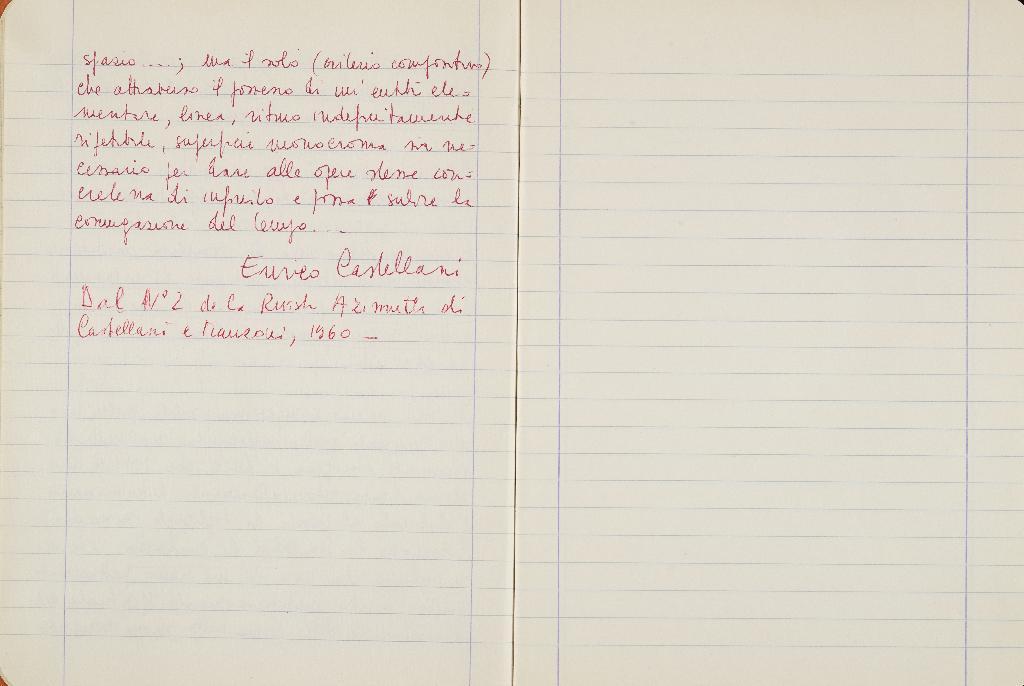 spazio ....; ma il solo (criterio compositivo)
che attraverso il possesso di un' entità ele=
mentare, linea, ritmo indefinitamente
ripetibile, superficie monocroma sia ne=
cessario per dare alle opere stesse con=
cretezza di infinito e possa subire la
coniugazione del tempo....
Enrico Castellani
Dal N° 2 de la Rivista Azimuth di
Castellani e Manzoni, 1960 —